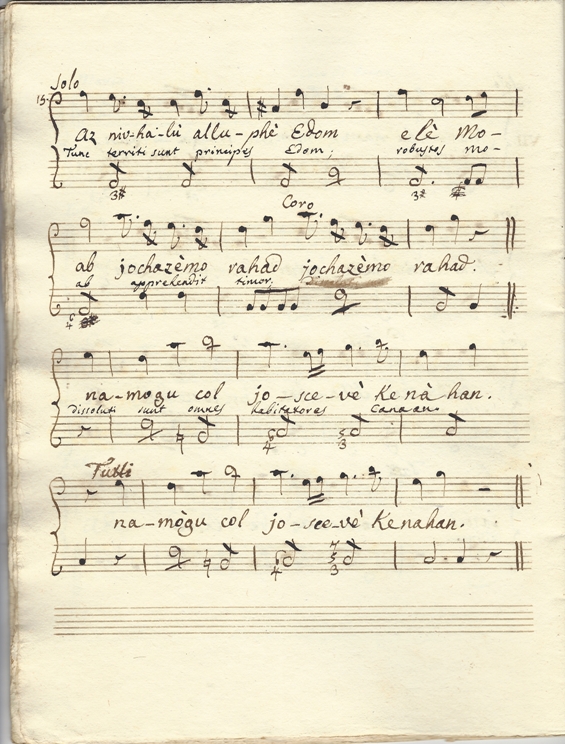 Solo
15.
Az niv-ha-lù allu-phè Edom elè Mo-
Tunc territi sunt principes Edom; robustos mo-
3# 3#
Coro
ab jochazèmo rahad jochazèmo rahad.
ab apprehendit timor
6
4
na-mogu col jo-sce-vè Kenàhan.
dissoluti sunt omnes habitatores Canaan
6 5
4 3
Tutti
na-mògu col jo-sce-vè Kenahan.
6 5
4 3